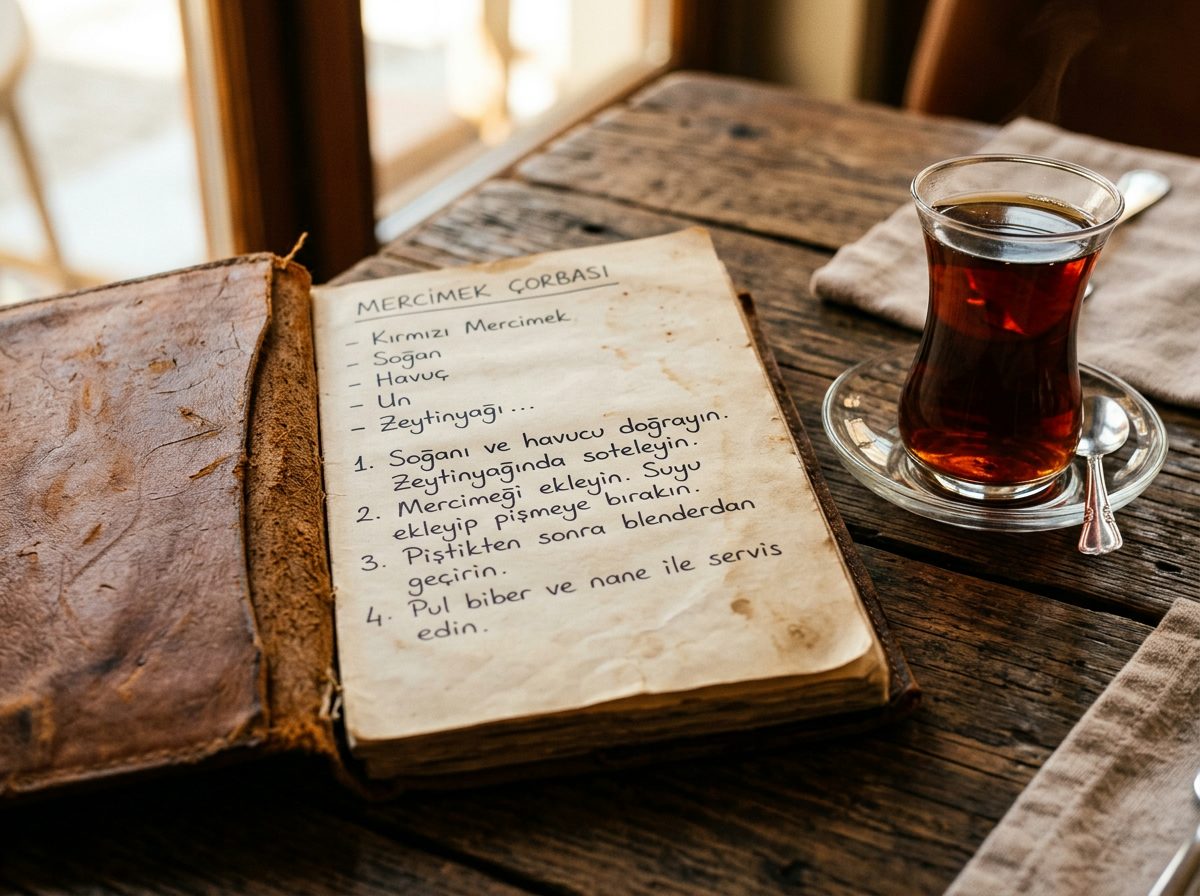 MERCİMEK ÇORBASI
- Kırmızı Mercimek
- Soğan
- Havuç
- Un
- Zeytinyağı ...
1. Soğanı ve havucu doğrayın.
Zeytinyağında soteleyin.
2. Mercimeği ekleyin. Suyu
ekleyip pişmeye bırakın.
3. Piştikten sonra blenderdan
geçirin.
4. Pul biber ve nane ile servis
edin.